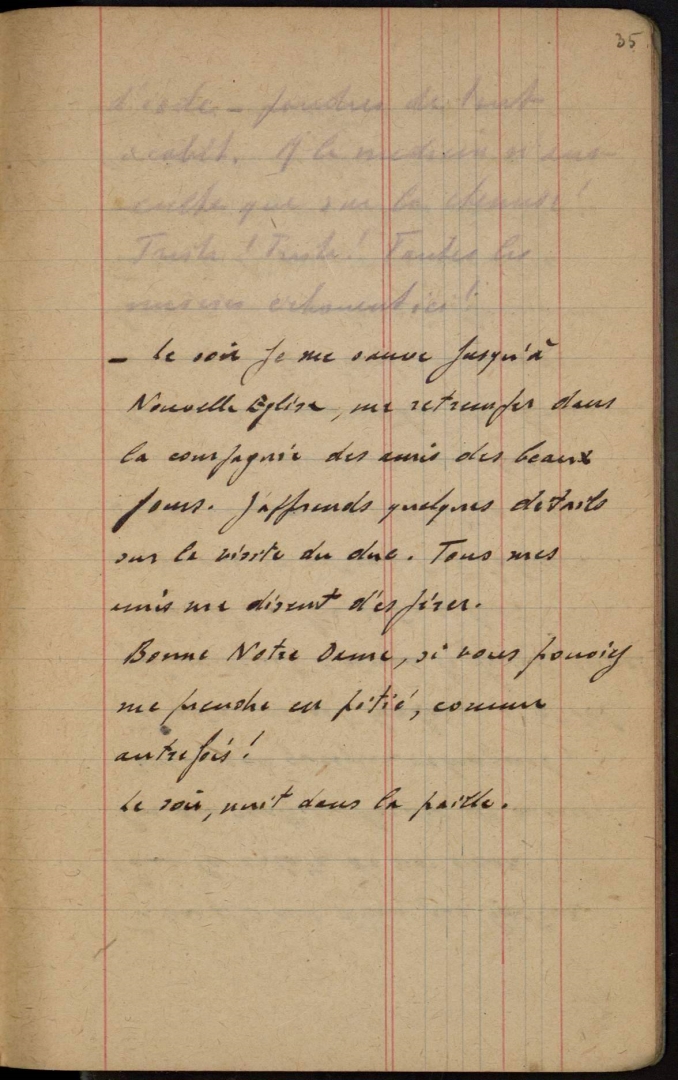 35
d'iode – poudres de tout
acabit. Et le medecin n'aus-
culte que sur la chemise!
Triste! Triste! Toutes les
misères echouent ici!
– Le soir je me sauve jusqu'à
Nouvelle Eglise, me retremper dans
la compagnie des amis des beaux
jours. J'apprends quelques détails
sur la visite du duc. Tous mes
amis me disent d'espérer.
Bonne Notre Dame, si vous pouviez
me prendre en pitié, comme
autrefois!
Le soir, nuit dans la paille.